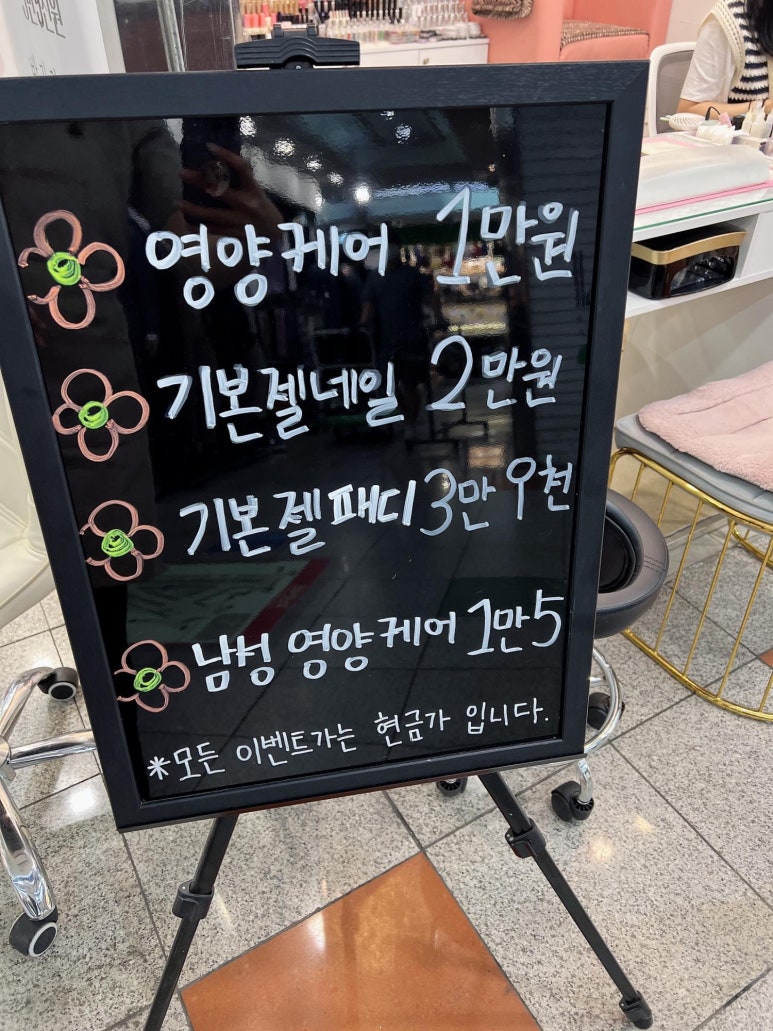 영양케어 1만원
기본젤네일 2만원
기본젤패디 3만 9천
남성 영양케어 1만5
*모든 이벤트가는 현금가 입니다.